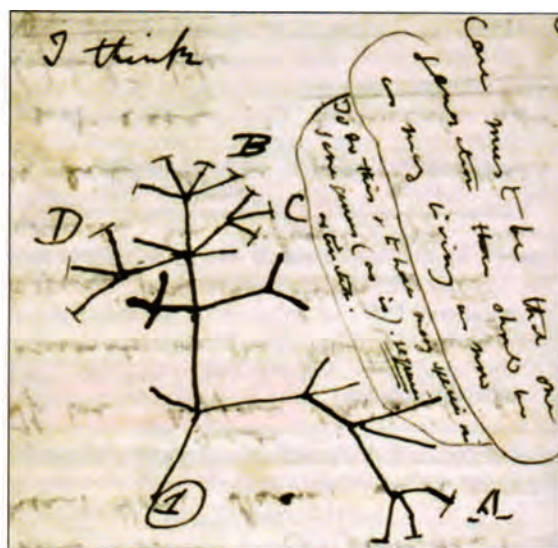 I think
Case must be that one
generation then should be
as many living as now
To do this & to have many species in
same genus (as is), requires
extinction.
B
C
D
A
1